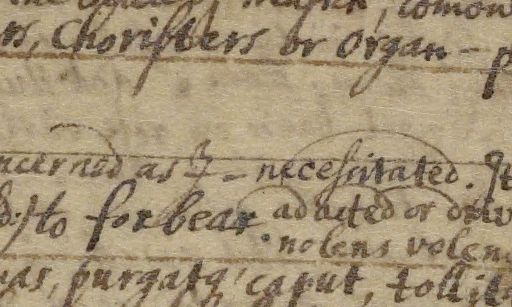 rs, Choristers or Organ - p
ncerned as - necessitated. It
to forbear adacted or driv
nolens volens
as, purgatq caput, tollit